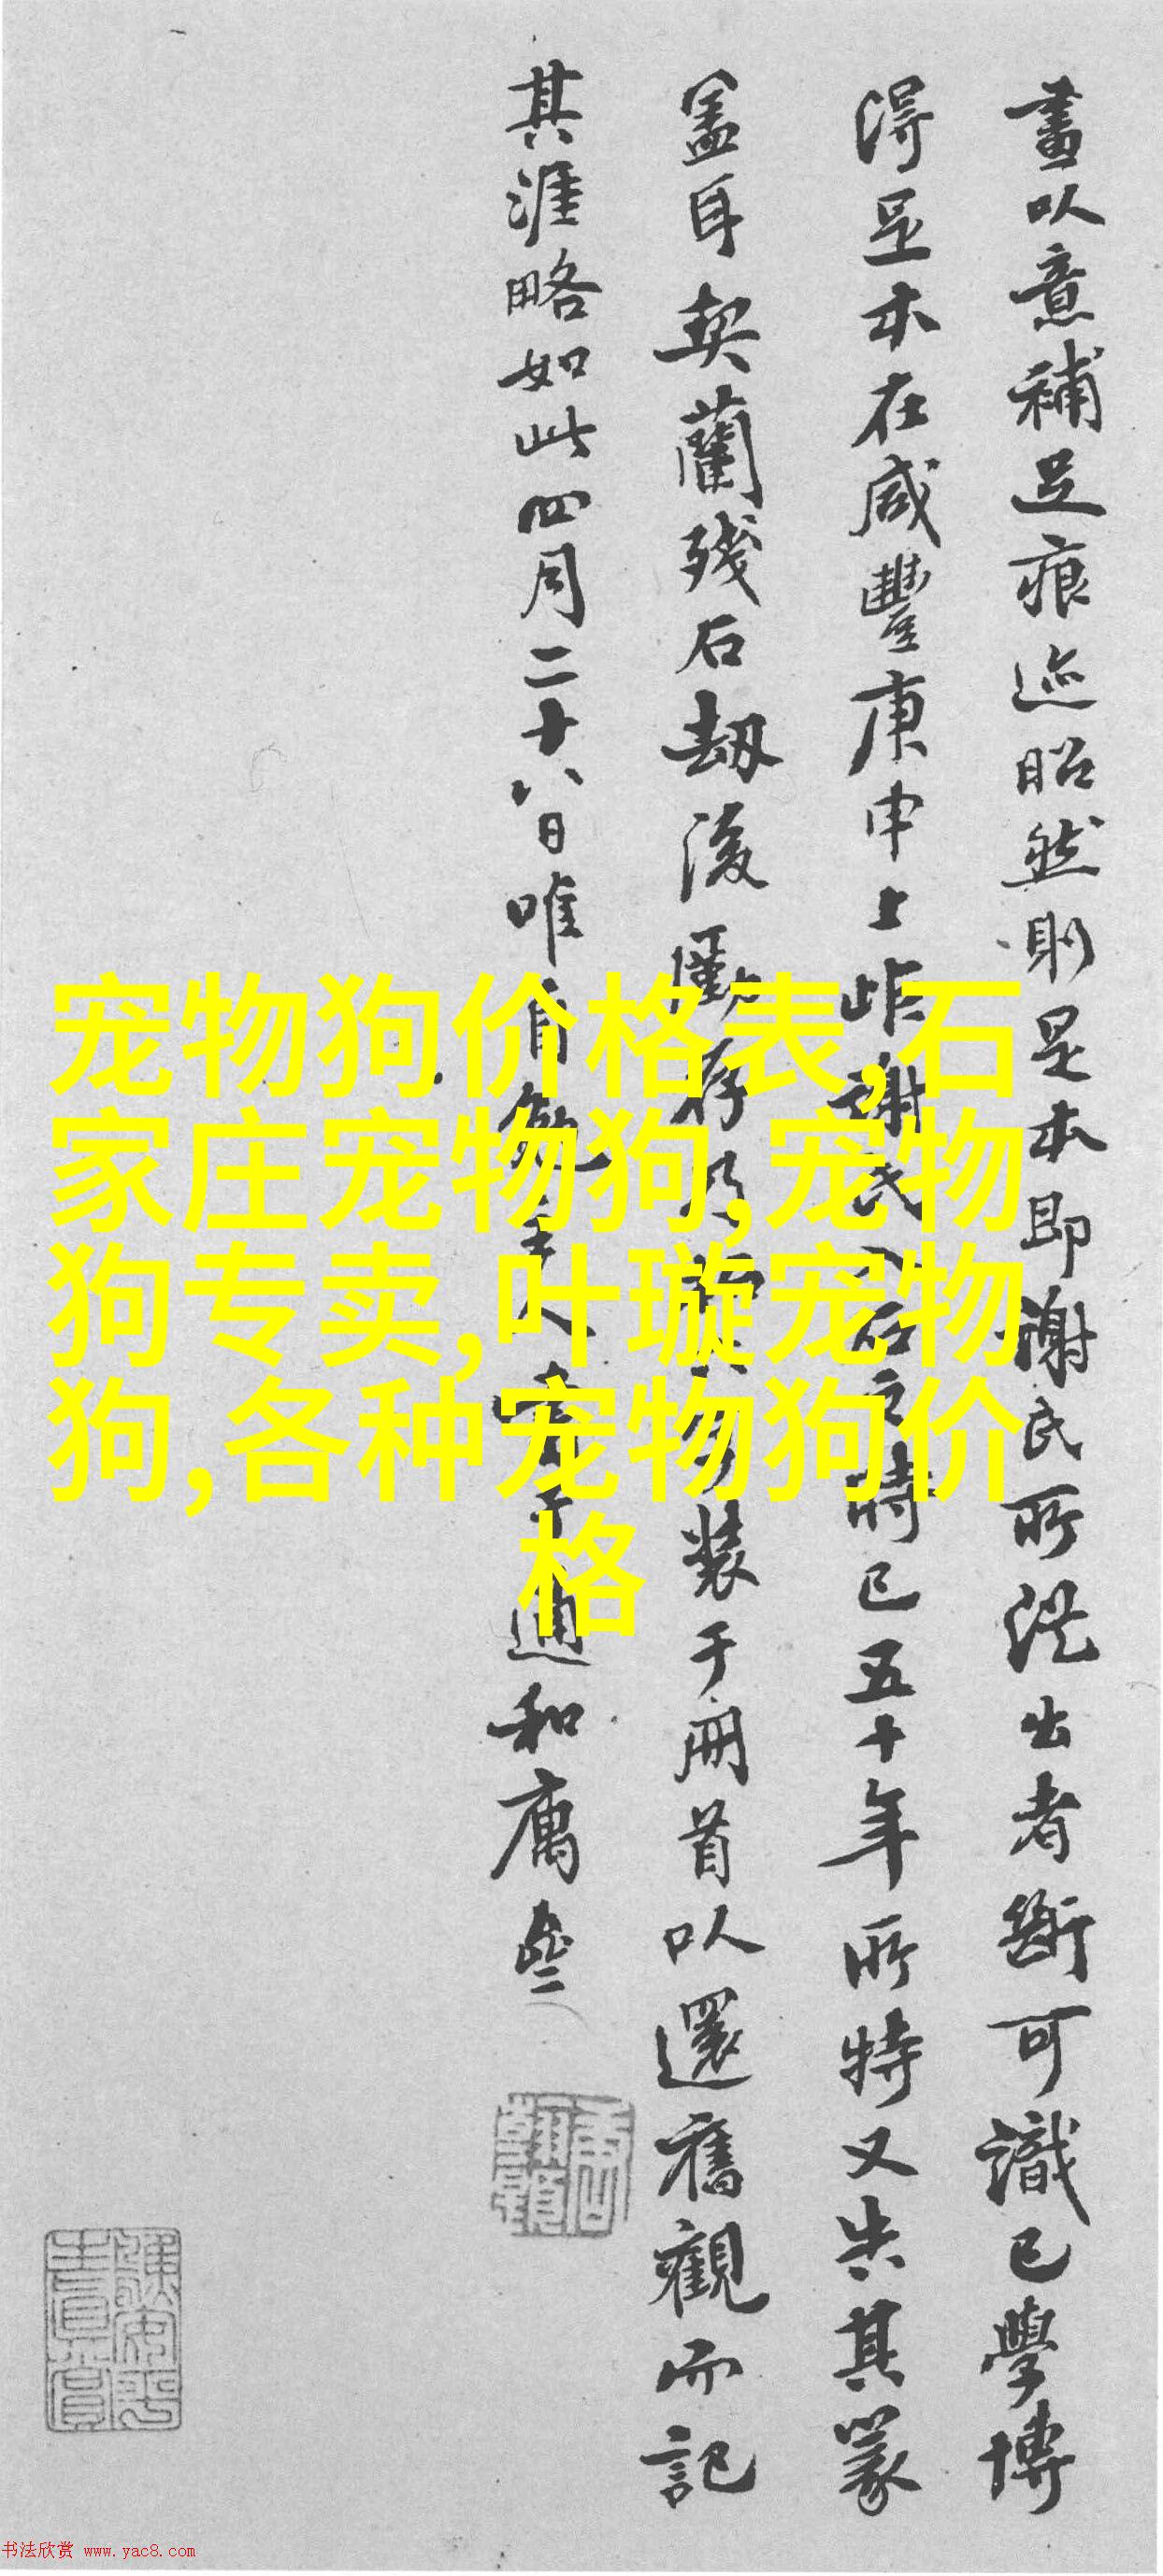 畫以意補足痕迹昭然則是本即謝氏所從出者斷可識已學博
得足本在咸豐庚申上距謝氏入石之時已五十年所特又失其篆
蓋耳契蘭殘石劫後僅存乃 裝于冊首以還舊觀而記
其涯略如此四月二十八日唯 通和廎
宠物狗价格表,石
家庄宠物狗,宠物
狗专卖,叶璇宠物
狗,各种宠物狗价
格
书法欣赏 www.yac8.com